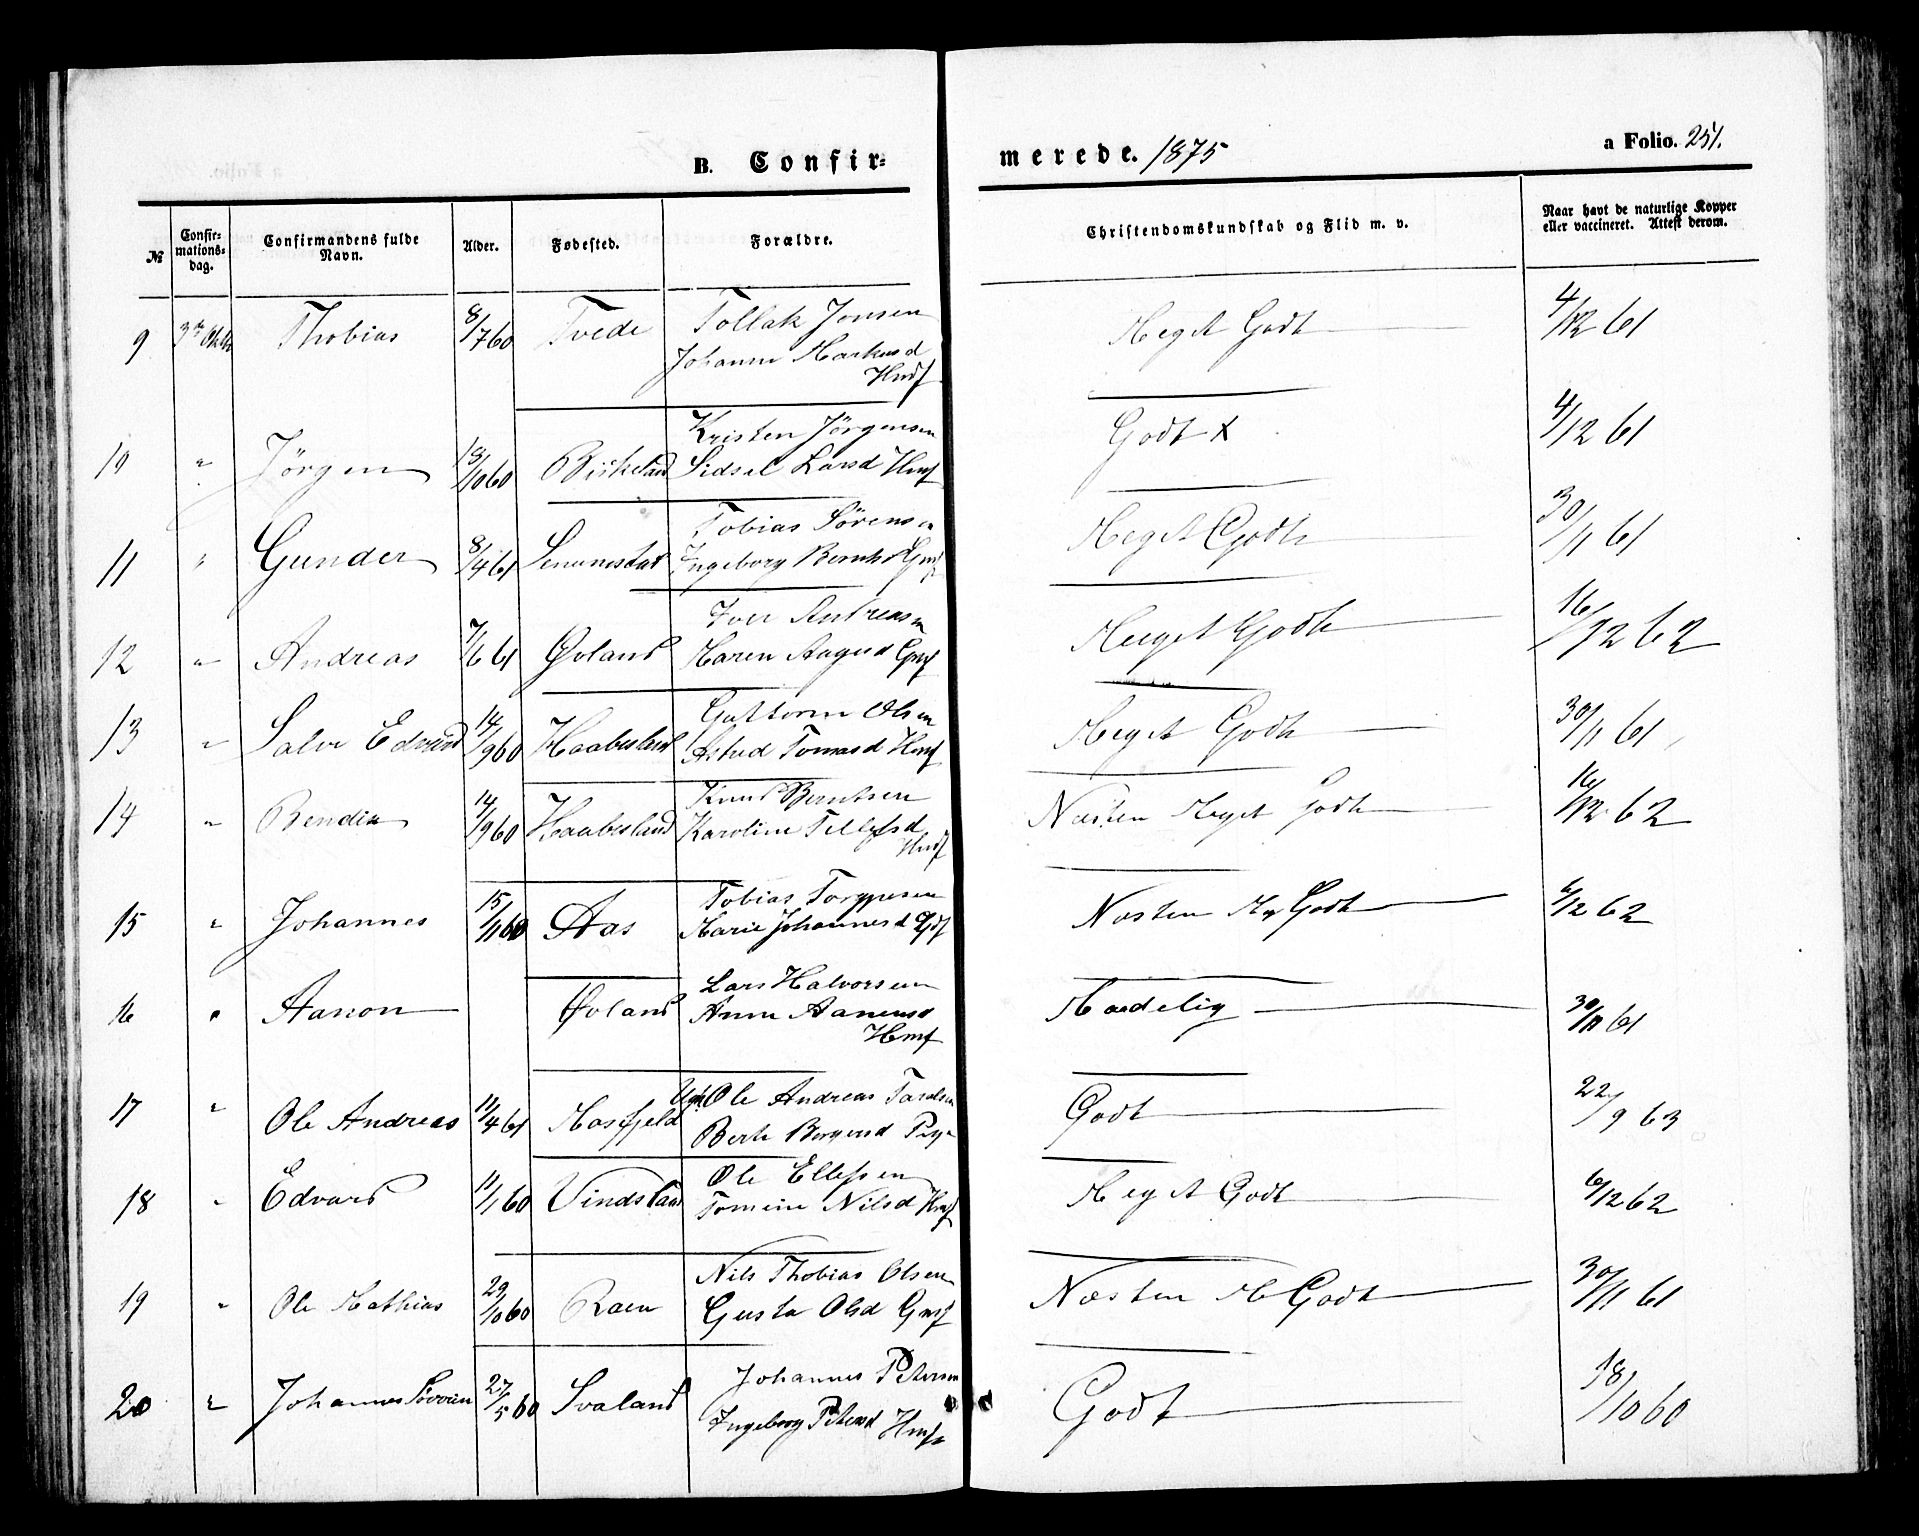 B. Confir-
merede. 1875
a Folio. 251.
№ Confir-mations-dag. Confirmandens fulde Navn. Alder. Fødested. Forældre. Christendomskundskab og Flid m. v. Naar havt de naturlige Kopper eller vaccineret. Attest derom.
9 3die Oktbr Thobias 8/7 60 Tvede Tollak Jonsen Meget Godt 4/12 61
Johanne Markusd
Hmf
10 " Jørgen 18/10 60 Birkeland Kristen Jörgensen Godt x 4/12 61
Sidsel Larsd Hmf
11 " Gunder 8/4 61 Tobias Sörensen Meget Godt 30/11 61
Ingeborg Berntsd Gmf
12 " Andreas 7/6 61 Øvland Iver Andreasen Meget Godt 16/12 62
Maren Aagesd Gmf
13 " Salve Edvard 14/9 60 Haabesland Guttorm Olsen Meget Godt 30/11 61
Astrid Tomasd Hmf
14 " Bendix 14/9 60 Haabesland Knud Berntsen Næsten Meget Godt 16/12 62
Karoline Tellefsd
Hmf
15 " Johannes 15/11 60 Aas Tobias Torgjusen Næsten Mg Godt 6/12 62
Marie Johannesd Gmf
16 " Aanon Øvland Lars Halvorsen Maadelig 30/11 61
Anne Aanensd
Hmf
17 " Ole Andreas 11/4 61 Mosfjeld Ugt. Ole Andreas Godt 22/9 63
Berte Pige
18 " Edvard 11/1 60 Vindsland Ole Ellefsen Meget Godt 6/12 62
Tomine Nilsd Hmf
19 " Ole Mathias 23/10 60 Raen Nils Thobias Olsen Næsten M Godt 30/11 61
Gusta Olsd Gmf
20 " Johannes 27/5 60 Svaland Johannes Petersen Godt 18/10 60
Ingeborg Petersd Hmf